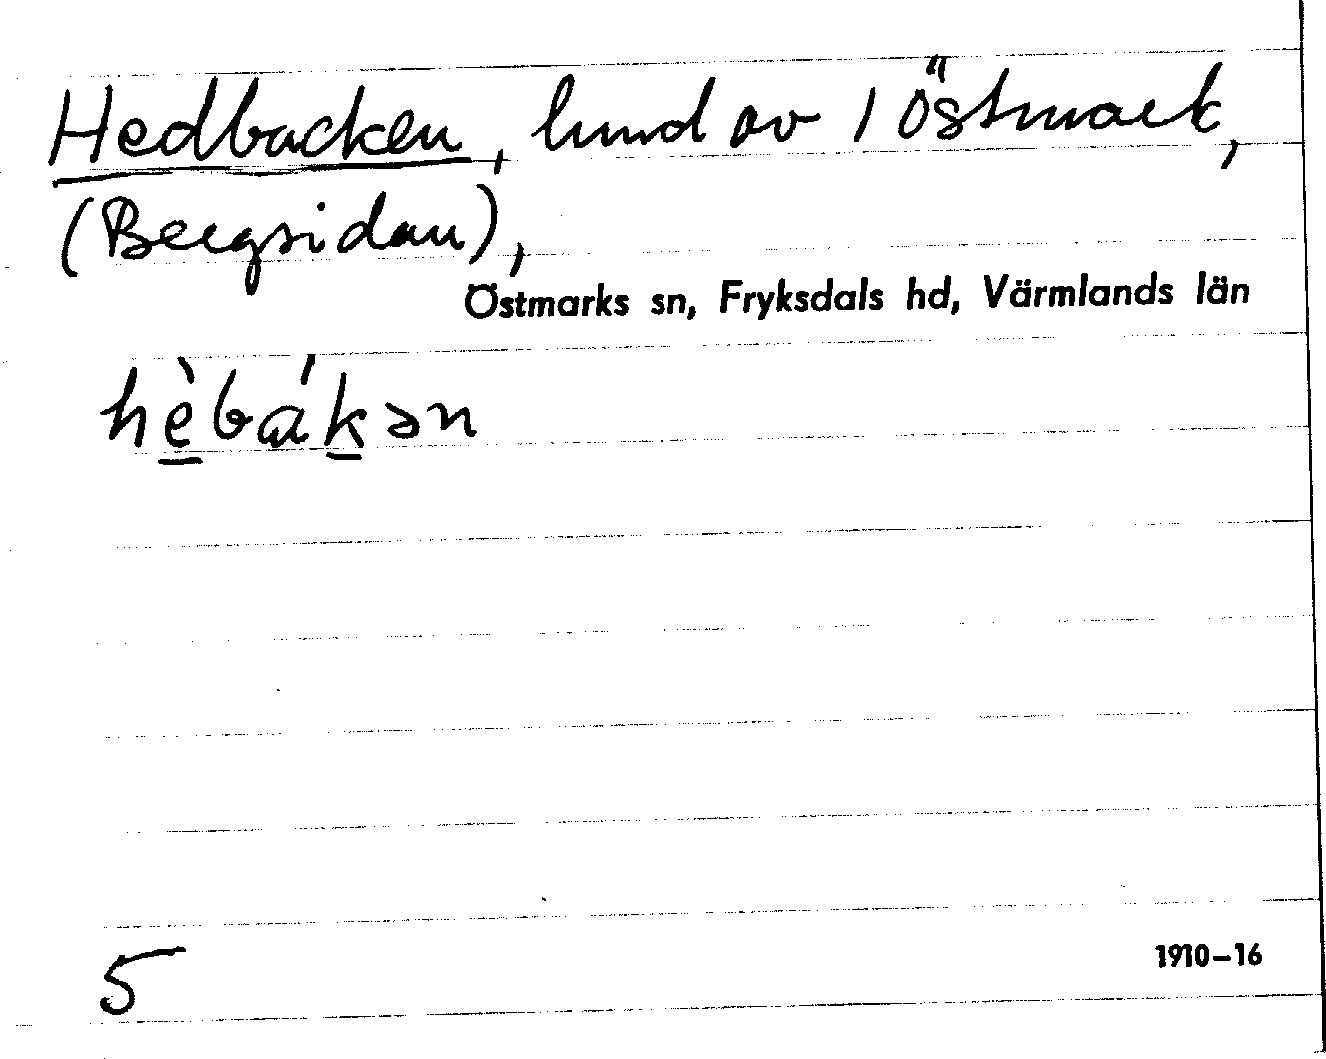 Hedbacken, lund av 1 Östmark,
(Bergsidan),
Östmarks sn, Fryksdals hd, Värmlands län
hè̱báḵən
5
1910–16